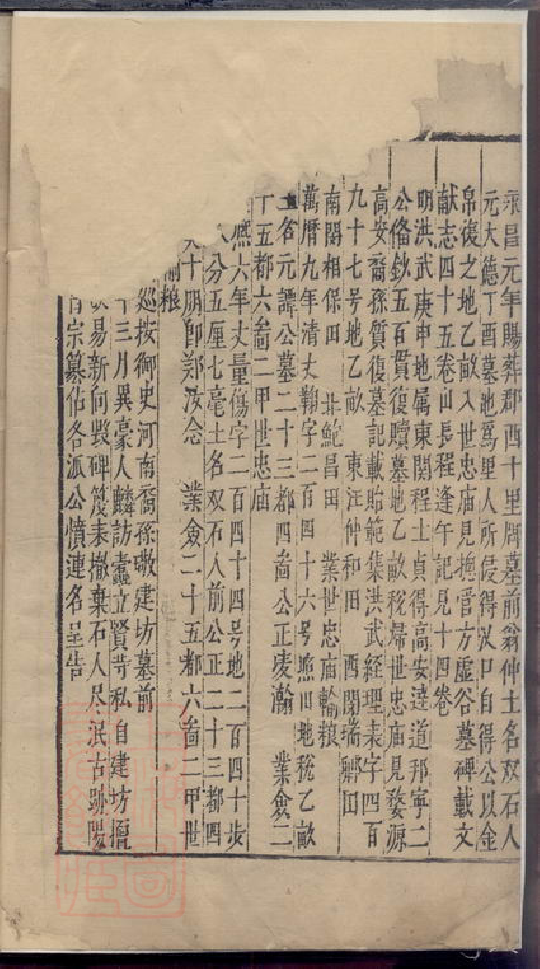 永昌元年賜葬郡西十里牌墓前翁仲土名双石人
元大德丁酉墓地爲里人所侵得汊口自得公以金
帛復之地乙畝入世忠庙見總管方虛谷墓碑載文
献志四十五卷山長程逢午記見十四卷
明洪武庚申地属東関程士貞得高安達道邦寧二
公俻鈔五百貫復贖墓地乙畝税歸世忠庙見婺源
高安裔孫質復墓記載貽範集洪武経理表字四百
九十七号地乙畝 東汪仲和田 西関瑤碧田
南関相保田 北鮑昌田 業世忠庙輸粮
萬暦九年清丈鞠字二百四十六号墓田地税乙畝
土名元譚公墓二十三都四啚公正凌瀚 業僉二
十五都六啚二甲世忠庙
熈六年丈量傷字二百四十四号地二百四十步
八分五厘七毫土名双石人前公正二十三都四
十朋即鄭汝念 業僉二十五都六啚二甲世
輸粮
巡按御史河南裔孫 建坊墓前
年三月異豪人麟訪 立賢寺私自建坊
易新向毀碑 表撤棄石人尽泯古跡
宗纂佑各派公憤連名呈告